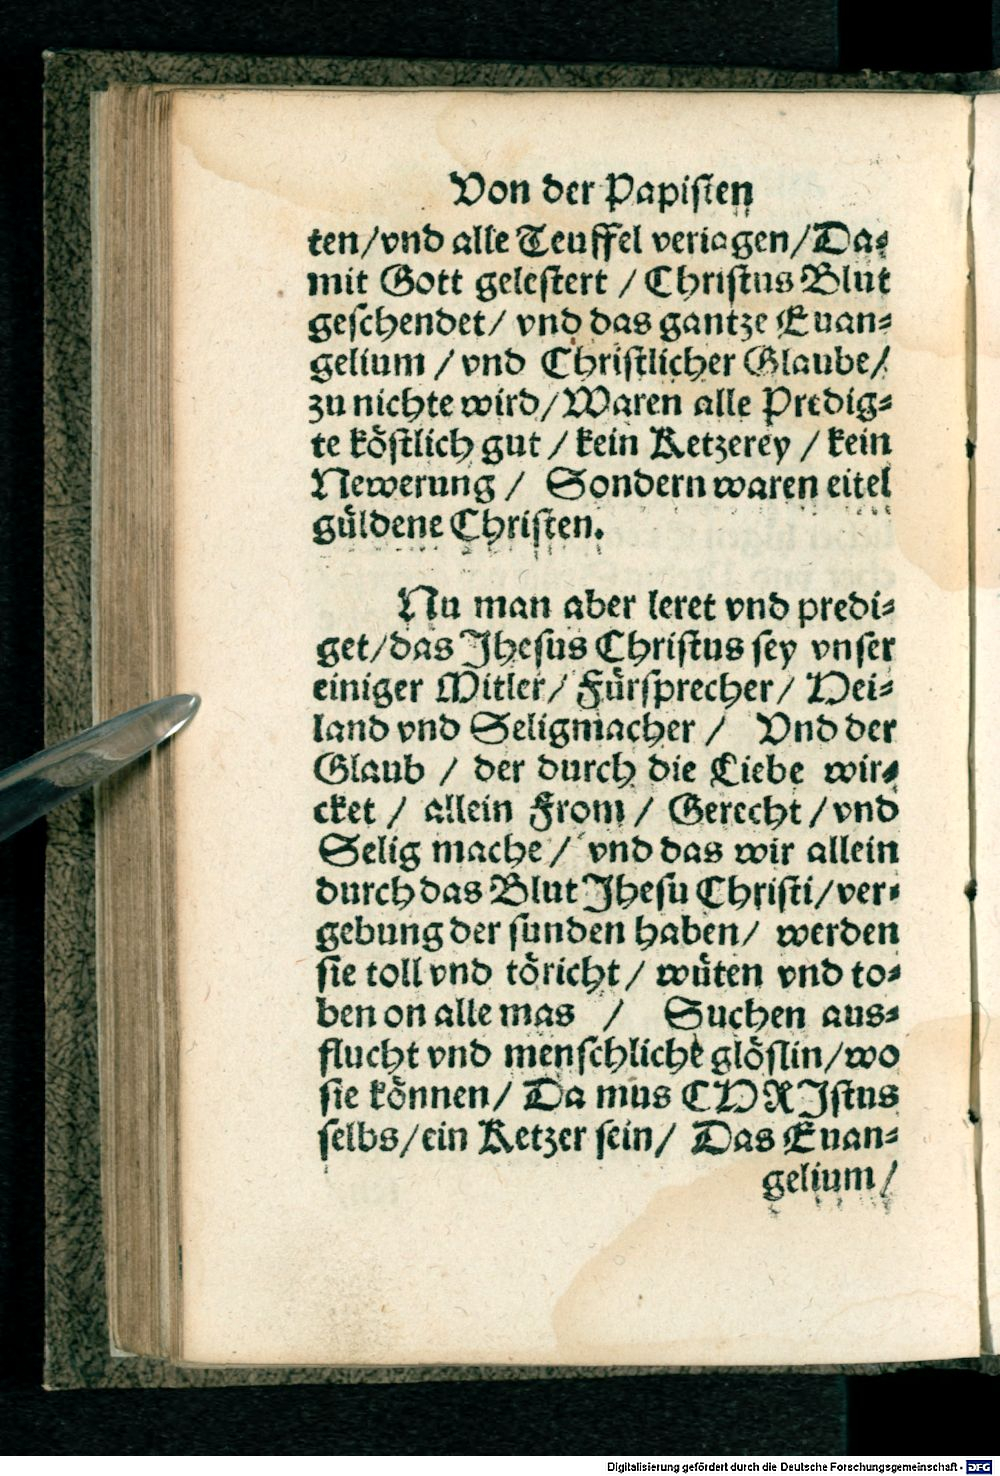 Von der Papisten
ten/vnd alle Teuffel veriagen/Da⸗
mit Gott gelestert / Christus Blut
geschendet/ vnd das gantze Euan⸗
gelium / vnd Christlicher Glaube/
zu nichte wird/ Waren alle Predig⸗
te köstlich gut / kein Ketzerey / kein
Newerung / Sondern waren eitel
güldene Christen.
Nu man aber leret vnd predi⸗
get/das Jhesus Christus sey vnser
einiger Mitler/ Fürsprecher/ Hei⸗
land vnd Seligmacher / Vnd der
Glaub / der durch die Liebe wir⸗
cket / allein From / Gerecht / vnd
Selig mache / vnd das wir allein
durch das Blut Jhesu Christi/ver⸗
gebung der sunden haben/ werden
sie toll vnd töricht / wüten vnd to⸗
ben on alle mas / Suchen aus⸗
flucht vnd menschliche glöslin/wo
sie können/ Da mus CHRJstus
selbs/ein Ketzer sein/ Das Euan⸗
gelium /
Digitalisierung gefördert durch die Deutsche Forschungsgemeinschaft - DFG